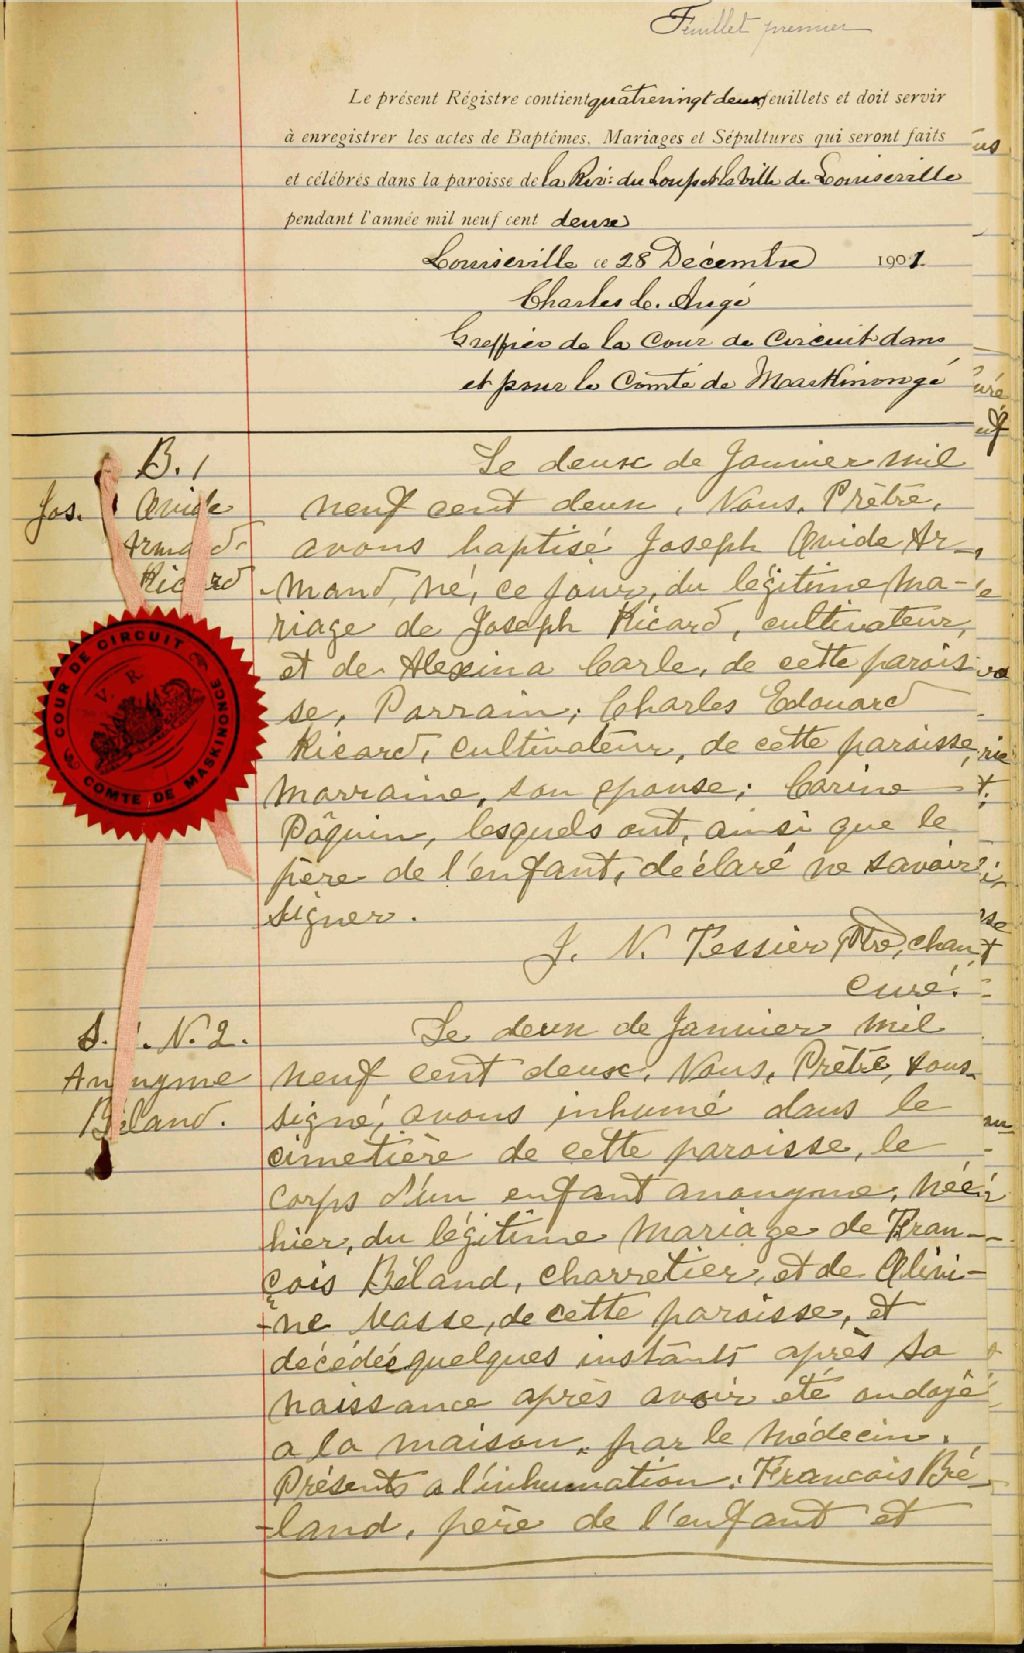 Feuillet premier
Le présent Régistre contient quatrevingt deux feuillets et doit servir
à enregistrer les actes de Baptêmes, Mariages et Sépultures qui seront faits
et célébrés dans la paroisse de la Riv: du Loup et la Ville de Louiseville
pendant l'année mil neuf cent deux
Louiseville ce 28 Décembre 1901
Charles L. Augé
Greffier de la Cour de Circuit dans
et pour le Comté de Maskinongé
B. 1
Jos. Ovide
Armand
Ricard
Le deux de Janvier mil
neuf cent deux, Nous, Prêtre,
avons baptisé Joseph Ovide Ar-
-mand, né, ce jour, du légitime ma-
riage de Joseph Ricard, cultivateur,
et de Alexina Carle, de cette parois
se, Parrain; Charles Edouard
Ricard, cultivateur, de cette paroisse,
Marraine, son epouse; Carine
Pâquin, lesquels ont, ainsi que le
père de l'enfant, déclaré ne savoir
signer.
J. N. Tessier Ptre, chan
curé.
COUR DE CIRCUIT
V. R
COMTE DE MASKINONGE
S. N. 2.
Anonyme
Béland.
Le deux de Janvier mil
neuf cent deux, Nous, Prêtre, sous-
signé, avons inhumé dans le
cimetière de cette paroisse, le
corps d'un enfant anonyme, né
hier, du légitime mariage de Fran-
çois Béland, charretier, et de Olivi-
-ne Masse, de cette paroisse, et
décédé quelques instants après sa
naissance après avoir été ondoyé
a la maison par le médecin.
Présents a l'inhumation: Francois Bé-
-land, père de l'enfant et